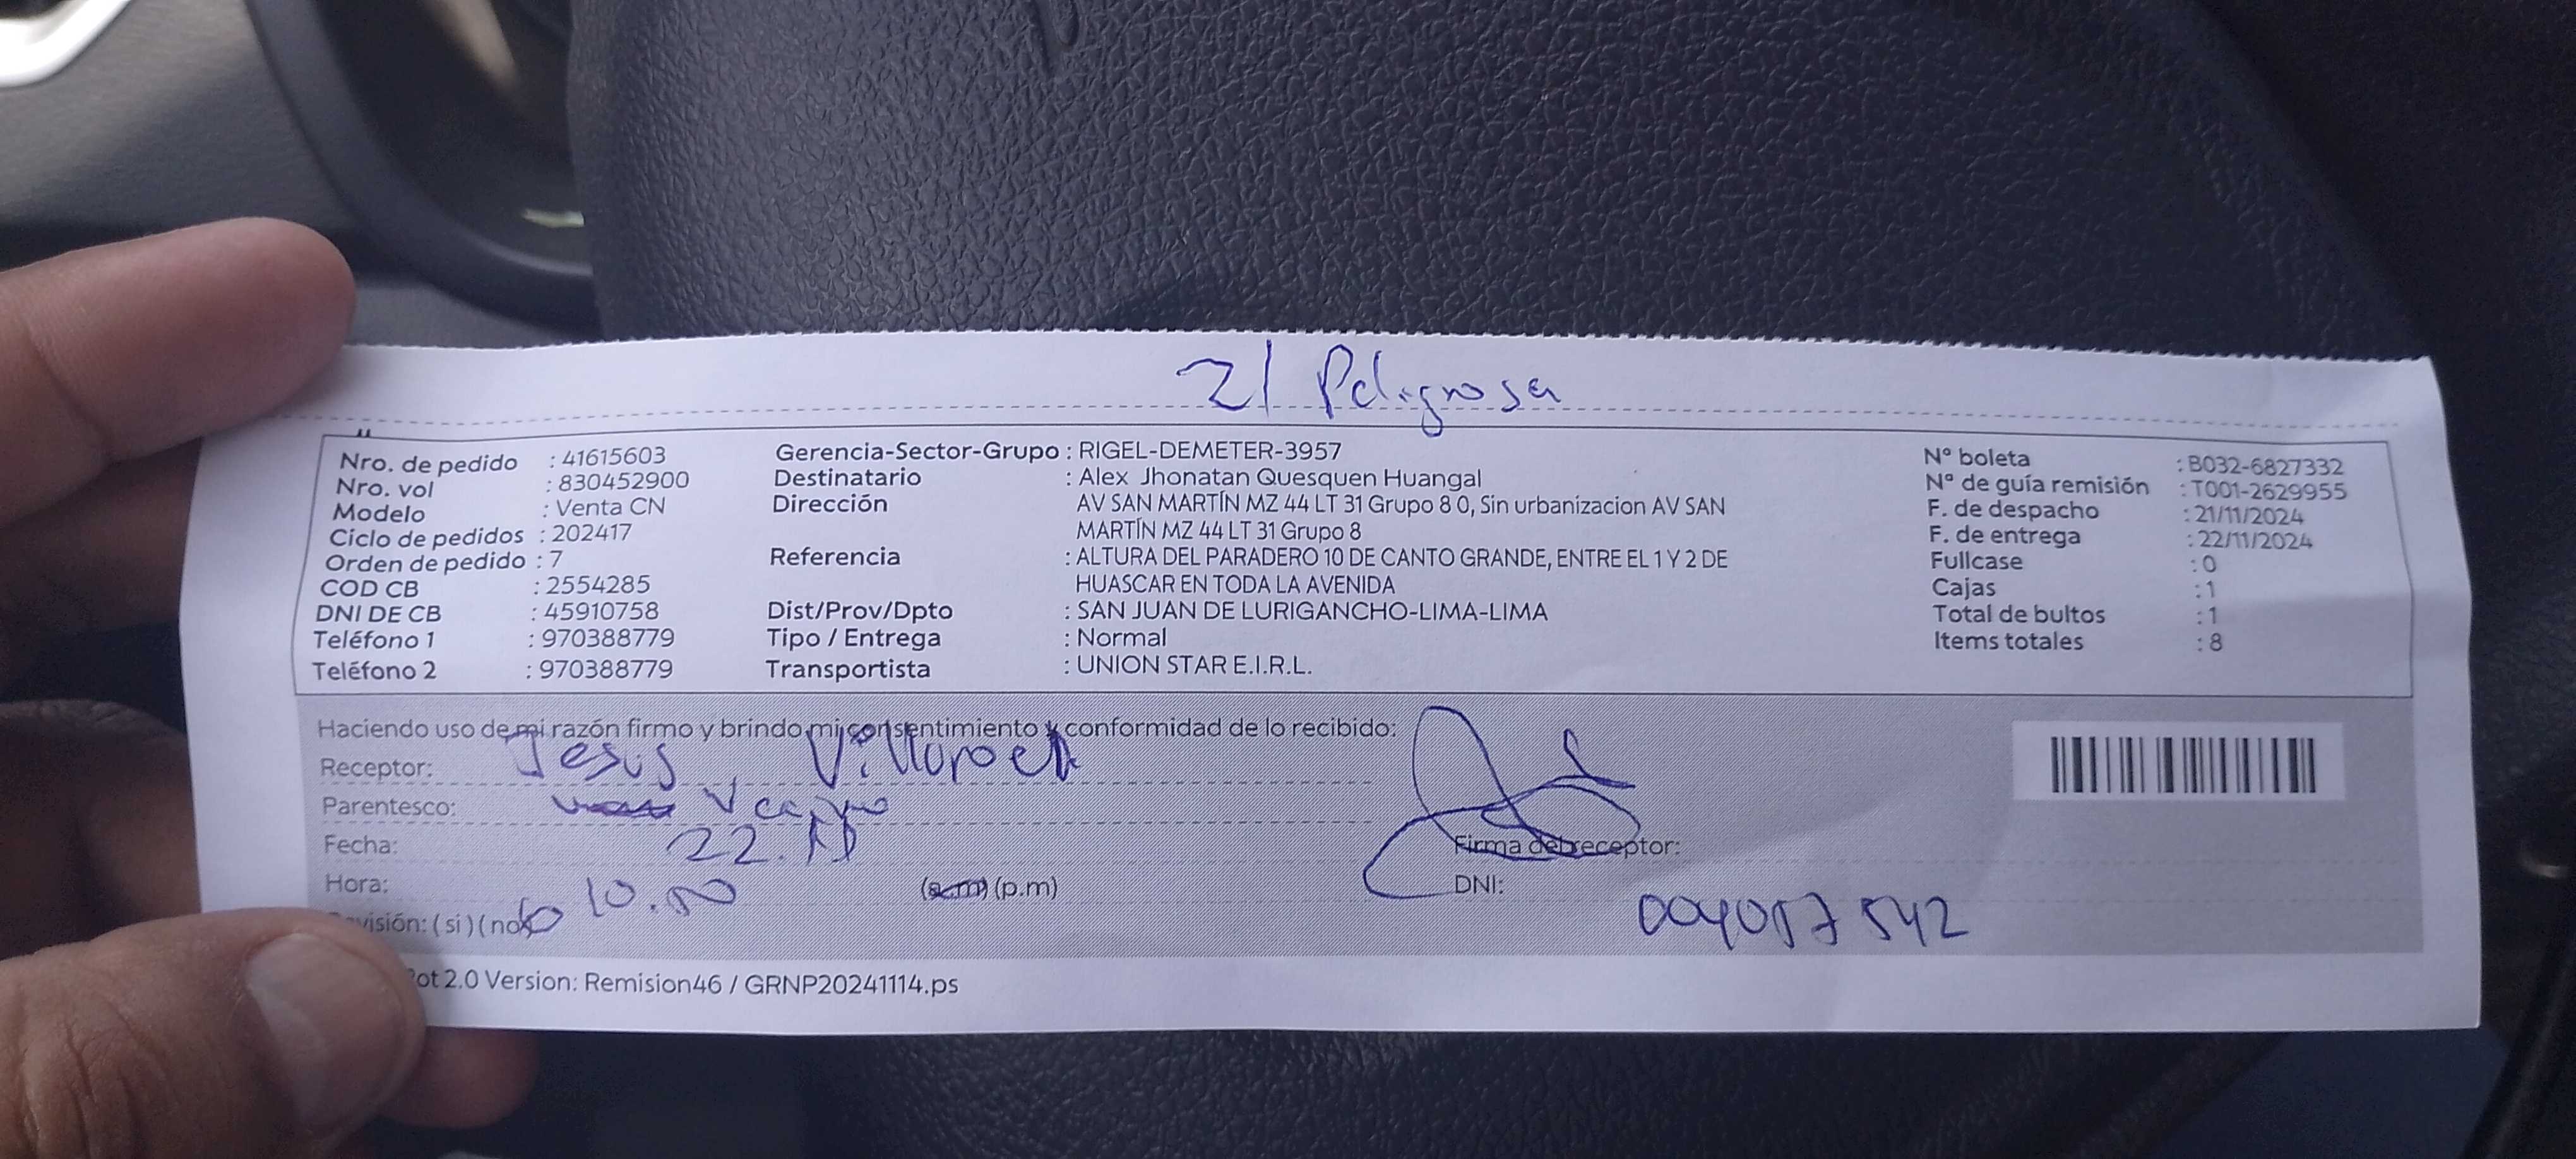 Z1 Peligrosa
Nro. de pedido : 41615603
Nro. vol : 830452900
Modelo : Venta CN
Ciclo de pedidos : 202417
Orden de pedido : 7
COD CB : 2554285
DNI DE CB : 45910758
Teléfono 1 : 970388779
Teléfono 2 : 970388779
Gerencia-Sector-Grupo : RIGEL-DEMETER-3957
Destinatario : Alex Jhonatan Quesquen Huangal
Dirección AV SAN MARTÍN MZ 44 LT 31 Grupo 8 0, Sin urbanizacion AV SAN
MARTÍN MZ 44 LT 31 Grupo 8
Referencia : ALTURA DEL PARADERO 10 DE CANTO GRANDE, ENTRE EL 1 Y 2 DE
HUASCAR EN TODA LA AVENIDA
Dist/Prov/Dpto : SAN JUAN DE LURIGANCHO-LIMA-LIMA
Tipo / Entrega : Normal
Transportista : UNION STAR E.I.R.L.
Nº boleta : B032-6827332
Nº de guía remisión : T001-2629955
F. de despacho : 21/11/2024
F. de entrega : 22/11/2024
Fullcase : 0
Cajas : 1
Total de bultos : 1
Items totales : 8
Haciendo uso de mi razón firmo y brindo mi consentimiento y conformidad de lo recibido:
Receptor: Jesus Villaroel
Parentesco:
Fecha: 22.11
Hora: 10.00 (a.m) (p.m)
(si) (no)
Firma del receptor:
DNI:
2.0 Version: Remision46 / GRNP20241114.ps